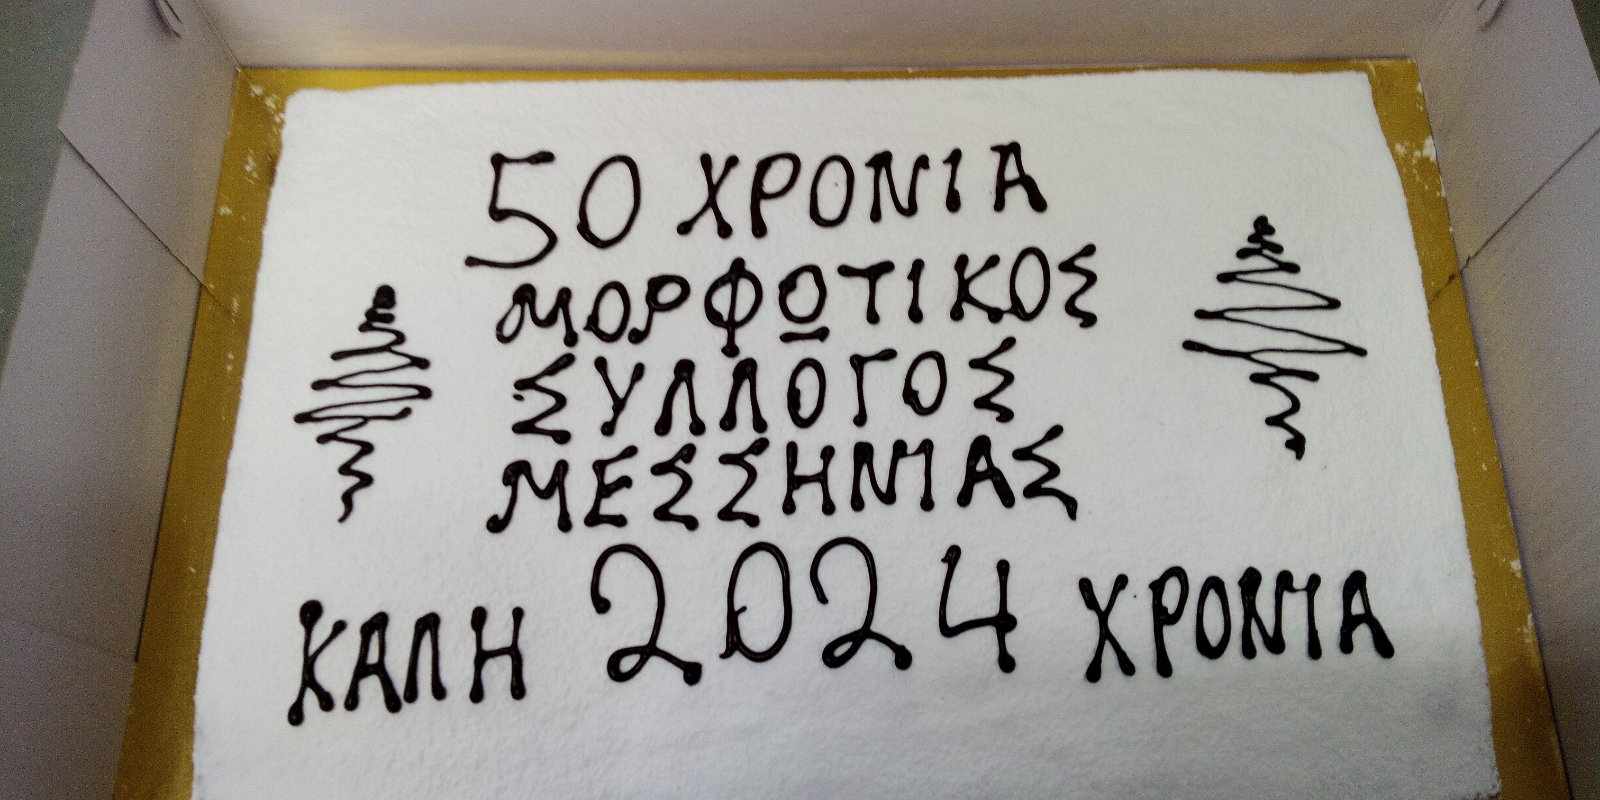 50 ΧΡΟΝΙΑ
ΜΟΡΦΩΤΙΚΟΣ
ΣΥΛΛΟΓΟΣ
ΜΕΣΣΗΝΙΑΣ
ΚΑΛΗ 2024 ΧΡΟΝΙΑ